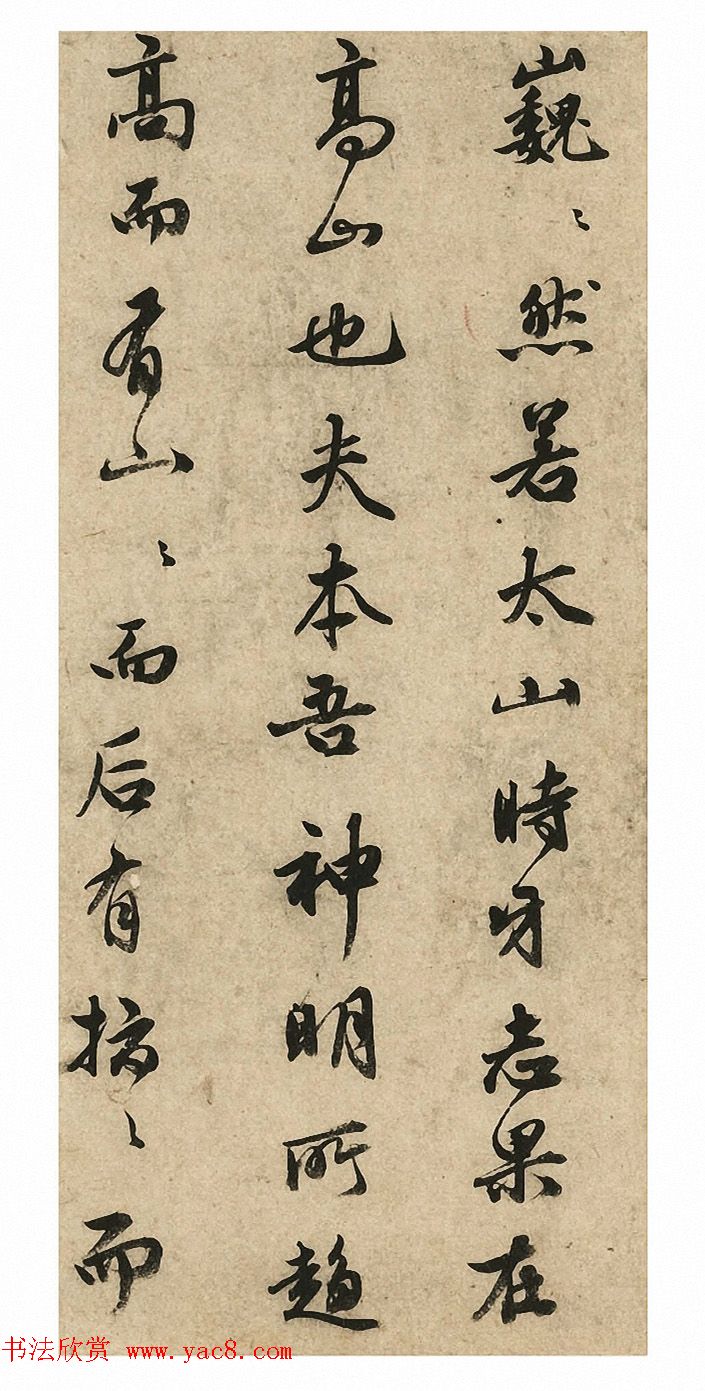 巍〻然若太山時牙志果在
高山也夫本吾神明所趋
高而有山〻而后有〻而
书法欣赏 www.yac8.com